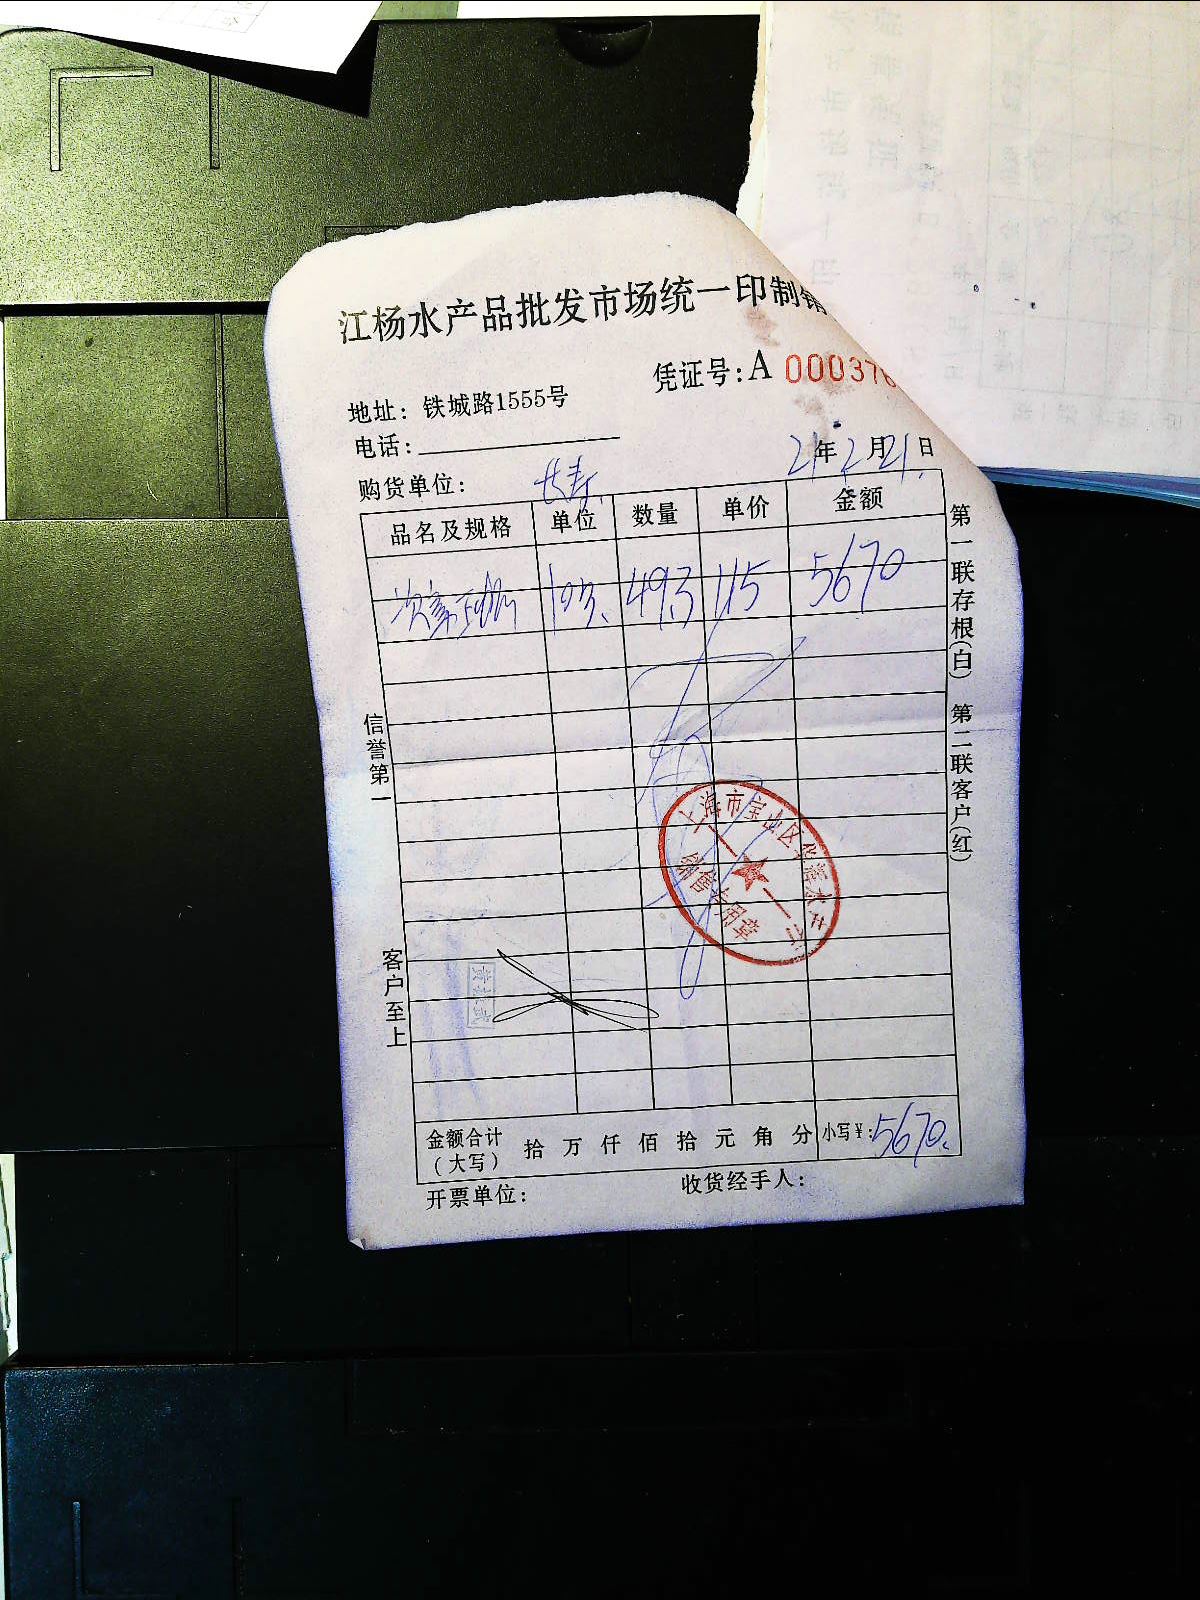 江杨水产品批发市场统一印制销
凭证号:A 000376
地址: 铁城路1555号
电话:
21年2月21日
购货单位: 长寿
品名及规格 单位 数量 单价 金额
49.3 115 5670
第一联存根(白) 第二联客户(红)
信誉第一
客户至上
上海市宝山区
销售专用章
金额合计(大写) 拾 万 仟 佰 拾 元 角 分 小写¥:5670.
开票单位: 收货经手人: